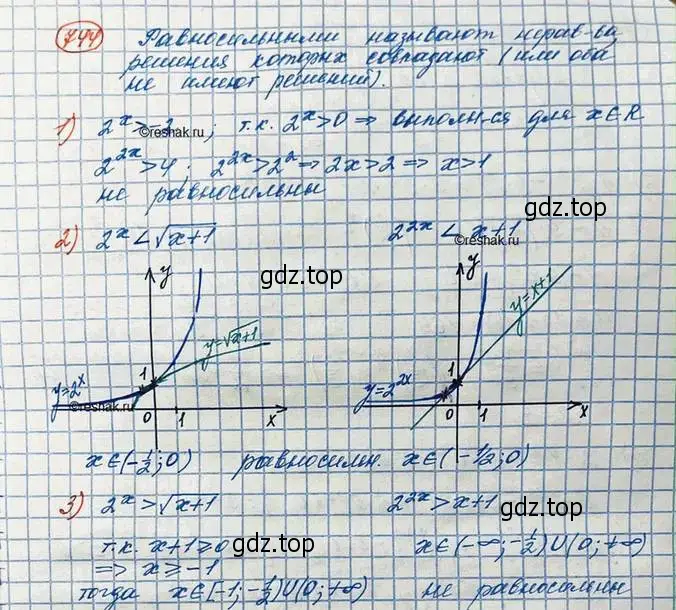 744 Равносильными называют нерав-ва
решения которых совпадают (или оба
не имеют решений).
1) 2^x > -2 ; т.к. 2^x > 0 ⇒ выполн-ся для x∈R
©reshak.ru
2^{2x} > 4 ; 2^{2x} > 2^2 ⇒ 2x > 2 ⇒ x > 1
не равносильны
gdz.top
2) 2^x < √(x+1) 2^{2x} < x+1
©reshak.ru
y y
gdz.top gdz.top
y=√(x+1) y=x+1
1 1
y=2^x y=2^{2x}
©reshak.ru
0 1 x 0 1 x
x∈(-1/2; 0) равносильн. x∈(-1/2; 0)
gdz.top
3) 2^x > √(x+1) 2^{2x} > x+1
т.к. x+1 ≥ 0 x∈(-∞; -1/2)∪(0; +∞)
gdz.top
⇒ x ≥ -1
тогда x∈[-1; -1/2)∪(0; +∞) не равносильны